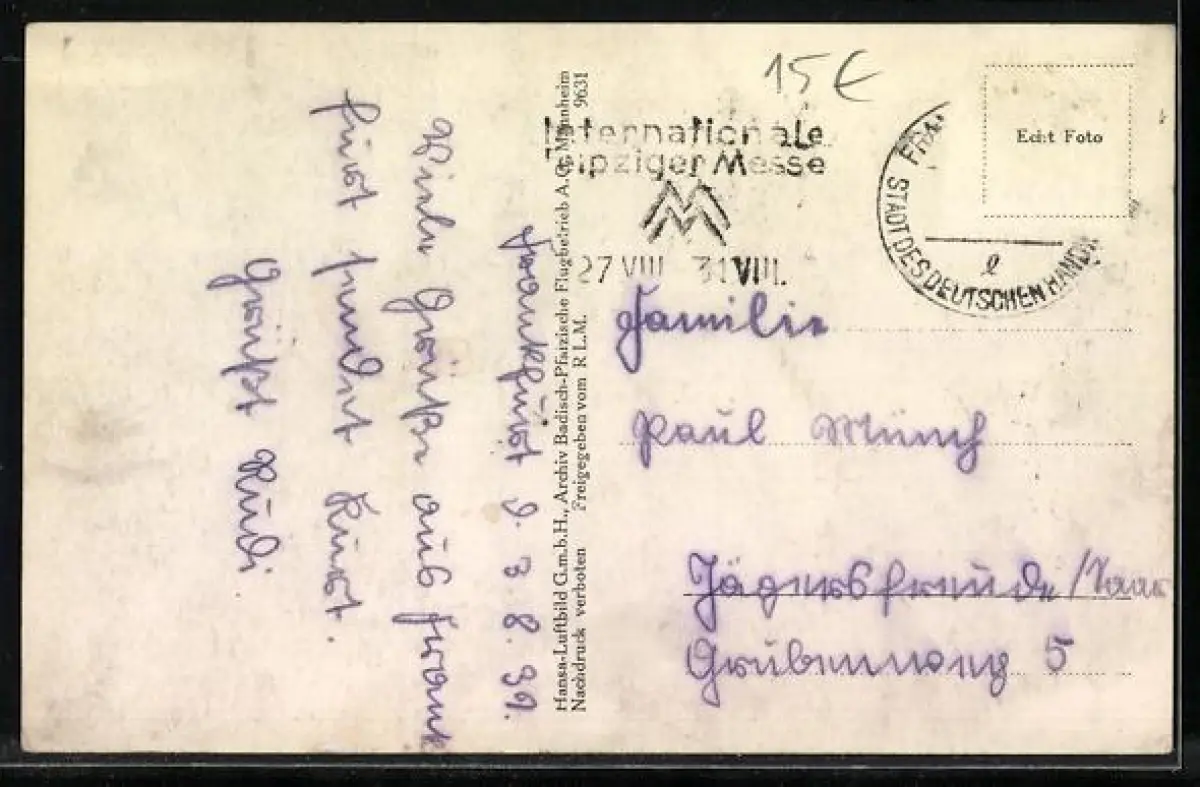 15 €
Internationale
Leipziger Messe
MM
27 VIII 31 VIII.
FRA
STADT DES DEUTSCHEN HAND
l
Echt Foto
Hansa-Luftbild G.m.b.H., Archiv Badisch-Pfälzische Flugbetrieb A.G. Mannheim
Nachdruck verboten Freigegeben vom R.L.M. 9631
Frankfurt d. 3. 8. 39.
Viele Grüße aus Frank
furt sendet Kurt.
Grüßt Rudi
Familie
Paul Münch
Jägersfreude / Saar
Grubenweg 5